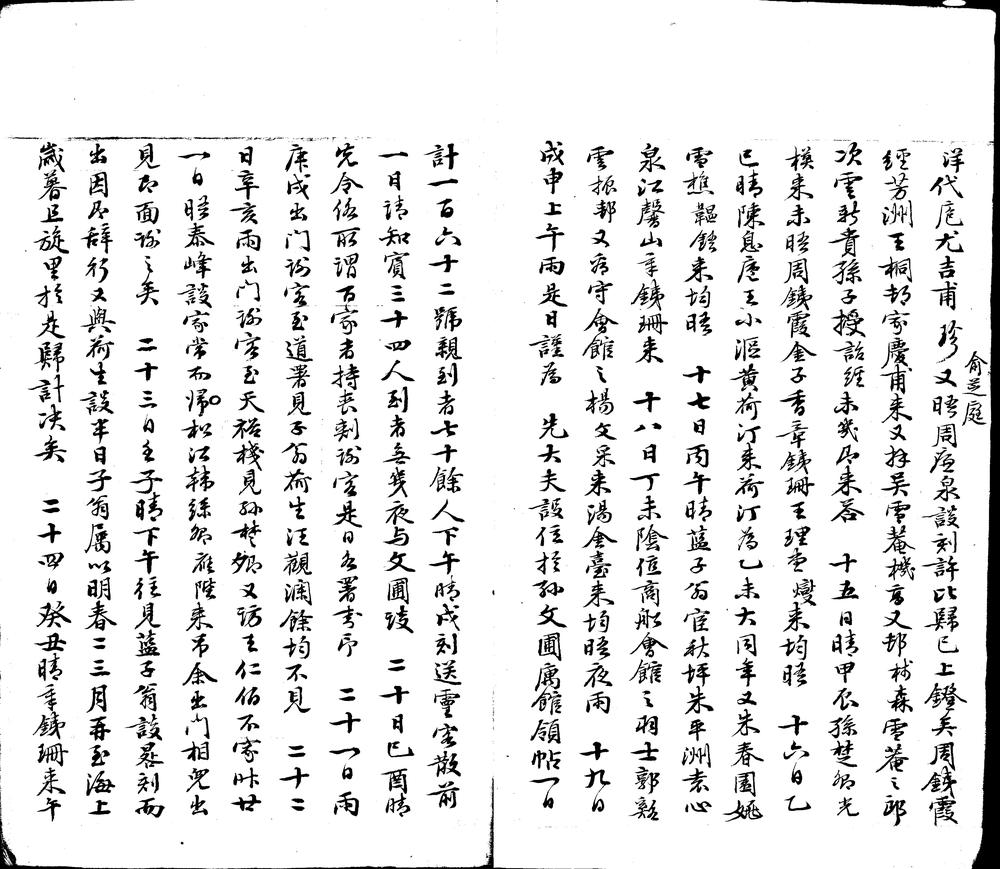 洋代庖尤吉甫珍又晤周雁泉談刻許比歸已上鐙矣周鐵霞
俞芝庭
經芳洲王桐邨家慶甫來又拜吳雪菴機言又邨栻森雪菴之郎
次雲新貴孫子授詒經未幾即來答 十五日晴甲辰孫楚卿光
模來未晤周鐵霞金子香章鐵珊王理堂燮來均晤 十六日乙
巳晴陳息廬王小漚黃荷汀來荷汀為乙未大同年又朱春園姚
雪樵鞰錧來均晤 十七日丙午晴藍子翁宦秋坪朱平洲袁心
泉江馨山章鐵珊來 十八日丁未陰位商船會館之羽士郭谿
雲振邦又府守會館之楊文采來湯金臺來均晤夜雨 十九日
戊申上午雨是日謹為 先大夫設位於孫文圃寓館領帖一日
計一百六十二號親到者七十餘人下午晴戌刻送靈客散前
一日請知賓三十四人到者無幾夜与文圃談 二十日己酉晴
先令俗所謂百家者持喪刺謝客是日各署書印 二十一日雨
庚戌出門謝客至道署見子翁荷生汪觀瀾餘均不見 二十二
日辛亥雨出門謝客至天裕棧見孫楚卿又訪王仁伯不家昨廿
一日晤泰峰談家常而歸松江韩綠卿應陛來弔余出門相兒出
見即面謝之矣 二十三日壬子晴下午往見藍子翁談晷刻而
出因即辭行又與荷生談半日子翁屬以明春二三月再至海上
歲暮且旋里於是歸計決矣 二十四日癸丑晴章鐵珊來午